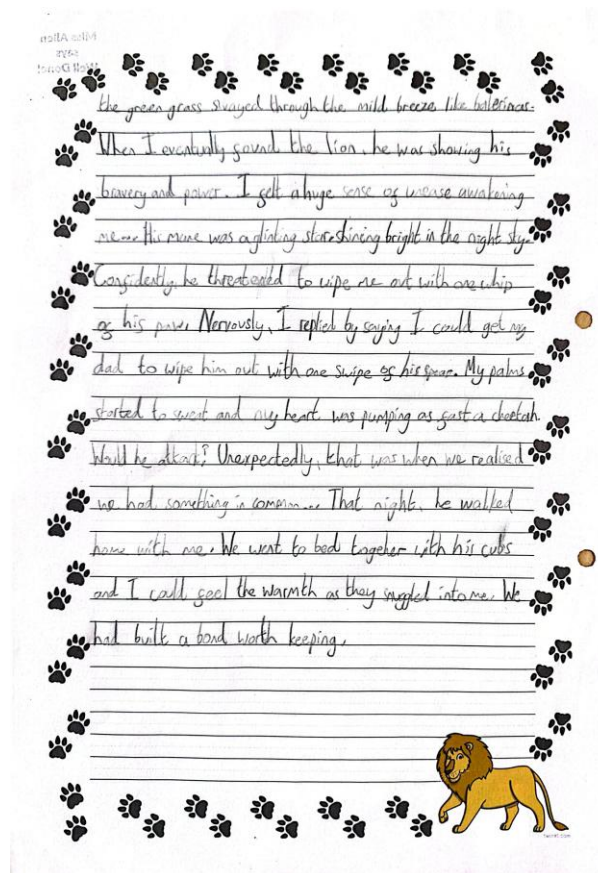 Miss Allen
says
Well Done!
the green grass swayed through the mild breeze like balerinas.
When I eventually found the lion, he was showing his
bravery and power. I felt a huge sense of unease awakening
me... His mane was a glinting star, shining bright in the night sky.
Confidently, he threatened to wipe me out with one whip
of his paw. Nervously, I replied by saying I could get my
dad to wipe him out with one swipe of his spear. My palms
started to sweat and my heart was pumping as fast a cheetah.
Would he attack? Unexpectedly, that was when we realised
we had something in common... That night, he walked
home with me. We went to bed together with his cubs
and I could feel the warmth as they snuggled into me. We
had built a bond worth keeping.
twinkl.com